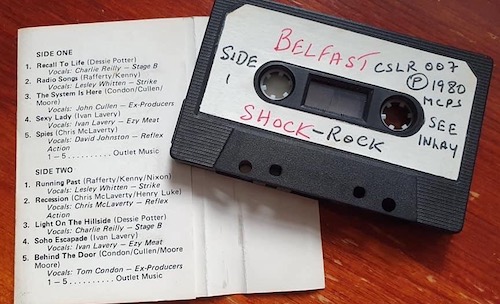 SIDE ONE
1. Recall To Life (Dessie Potter)
Vocals: Charlie Reilly – Stage B
2. Radio Songs (Rafferty/Kenny)
Vocals: Lesley Whitten – Strike
3. The System is Here (Condon/Cullen/
Moore)
Vocals: John Cullen – Ex-Producers
4. Sexy Lady (Ivan Lavery)
Vocals: Ivan Lavery – Ezy Meat
5. Spies (Chris McLaverty)
Vocals: David Johnston – Reflex
Action
1 – 5 . . . . . . . . . . Outlet Music
SIDE TWO
1. Running Past (Rafferty/Kenny/Nixon)
Vocals: Lesley Whitten – Strike
2. Recession (Chris McLaverty/Henry Luke)
Vocals: Chris McLaverty – Reflex
Action
3. Light On The Hillside (Dessie Potter)
Vocals: Charlie Reilly – Stage B
4. Soho Escapade (Ivan Lavery)
Vocals: Ivan Lavery – Ezy Meat
5. Behind The Door (Condon/Cullen/Moore
Moore)
Vocals: Tom Condon – Ex-Producers
1 – 5 . . . . . . . . . . Outlet Music
SIDE
1
BELFAST
CSLR 007
Ⓟ 1980
MCPS
SEE
INLAY
SHOCK-ROCK